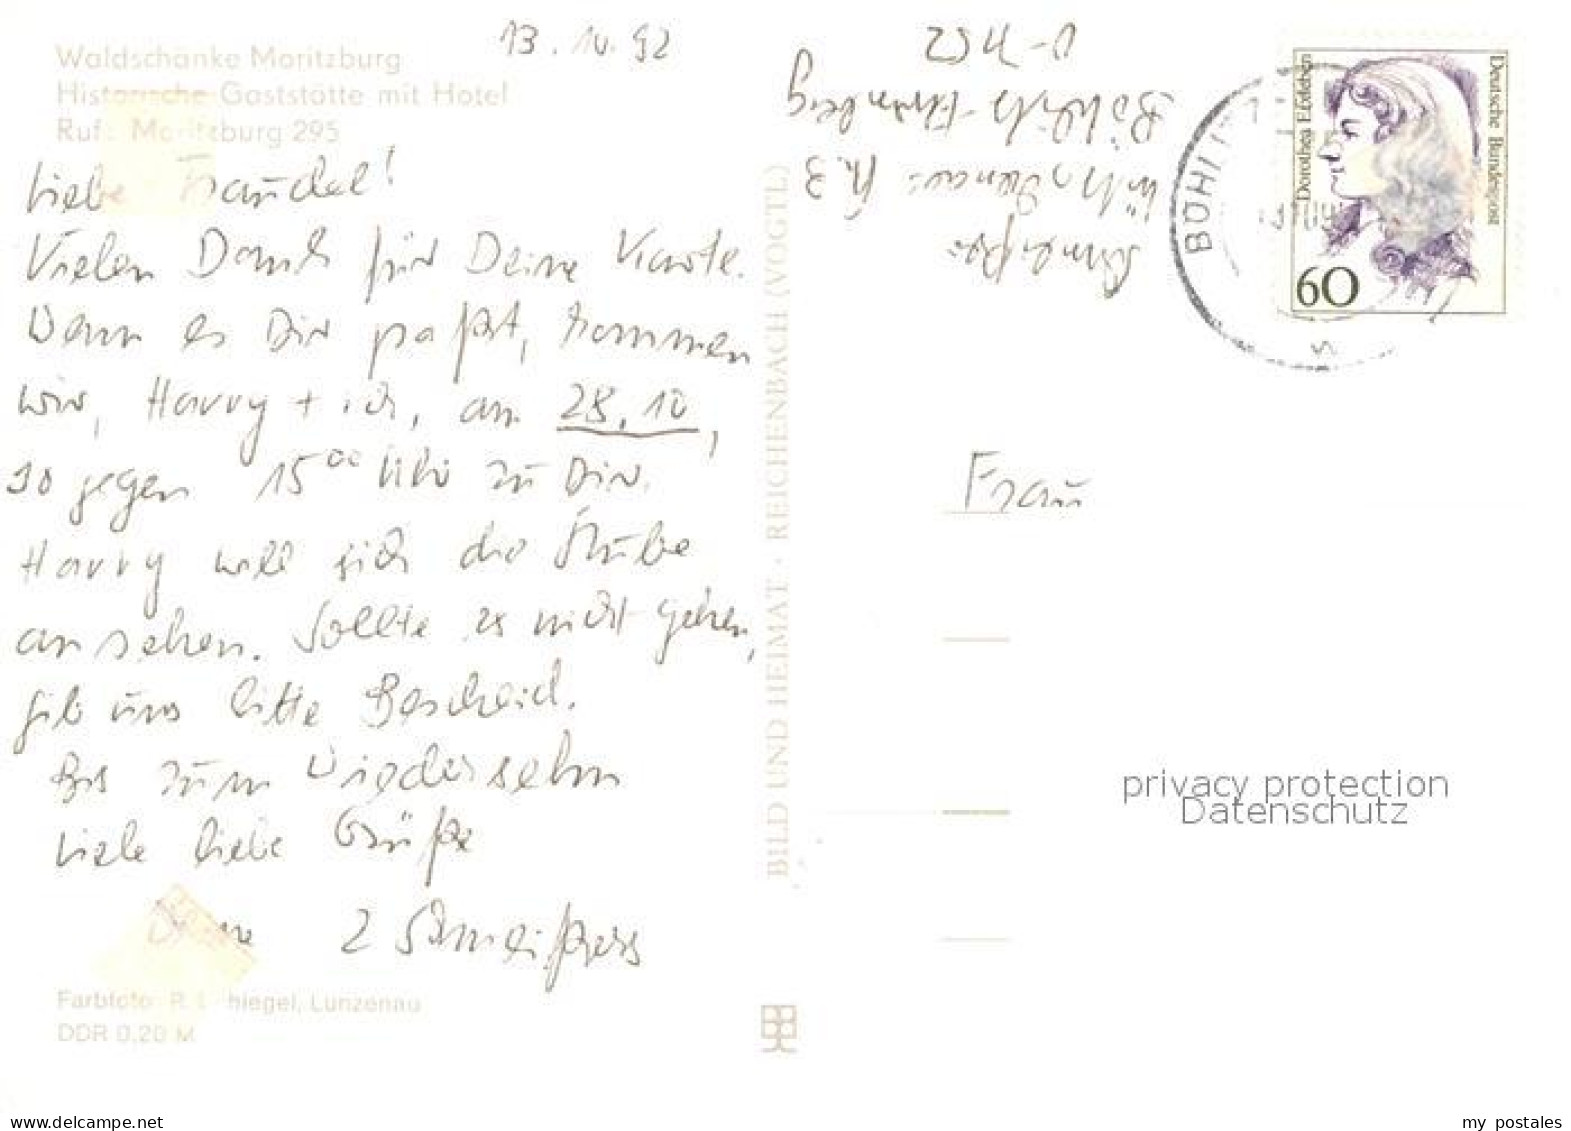 13.10.92
Waldschänke Moritzburg
Historische Gaststätte mit Hotel
Ruf: Moritzburg 295
Liebe Traudel!
Vielen Dank für Deine Karte.
Wenn es Dir paßt, kommen
wir, Harry + ich, am 28.10,
so gegen 15⁰⁰ Uhr zu Dir.
Harry will sich die Stube
ansehen. Sollte es nicht gehen,
gib uns bitte Bescheid.
Bis zum Wiedersehn
Viele liebe Grüße
Deine 2 Schmeißers
Farbfoto: R. hiegel, Lunzenau
DDR 0,20 M
BILD UND HEIMAT · REICHENBACH (VOGTL)
Schmeißer
Nr. 3
Böhlitz-Ehrenberg
Deutsche Bundespost
Dorothea Erxleben
60
BÖHLIT
Frau
privacy protection
Datenschutz
www.delcampe.net
my_postales